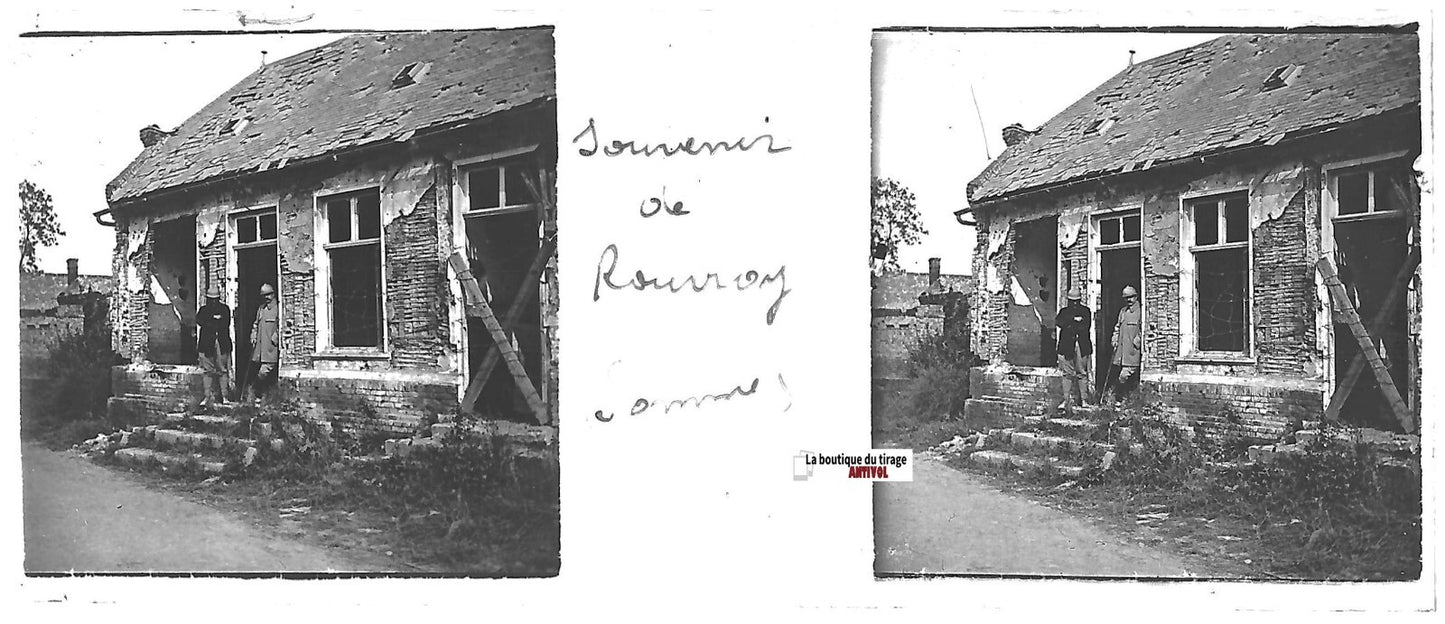 Souvenir
de
Rouvroy
Somme)
La boutique du tirage
ANTIVOL